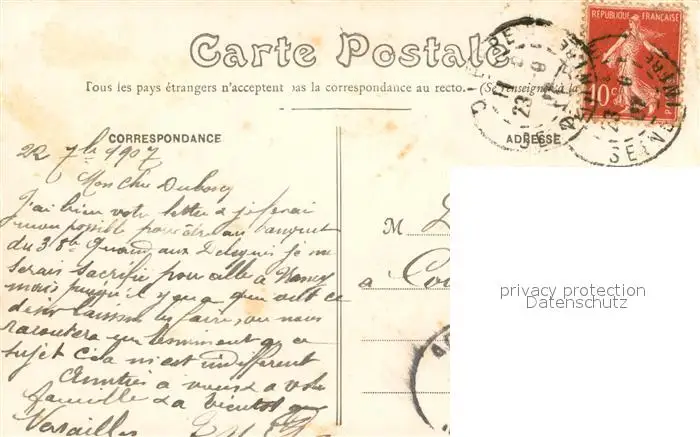 RÉPUBLIQUE FRANÇAISE
10c
Carte Postale
Tous les pays étrangers n'acceptent pas la correspondance au recto. (Se renseigner à la
CORRESPONDANCE
ADRESSE
22 7bre 1907
Mon cher Duboscq
J'ai bien votre lettre & je ferai
mon possible pour être au banquet
du 3 8bre Quand aux je me
serais sacrifié pour aller à Nancy
mais puisqu'il y en a qui ont ce
désir laissons les faire, on nous
racontera
sujet Cela m'est indifférent
Amitiés à vous & à votre
famille & à bientôt
Versailles
M
à Cou
privacy protection
Datenschutz